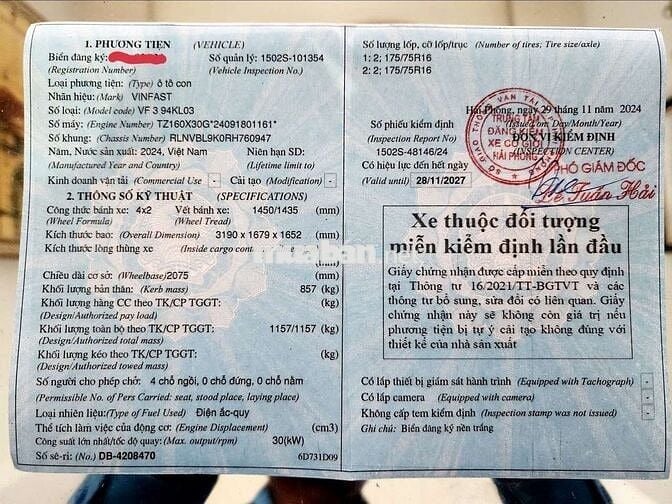 1. PHƯƠNG TIỆN (VEHICLE)
Biển đăng ký:
Số quản lý: 1502S-101354
(Registration Number)
(Vehicle Inspection No.)
Loại phương tiện: (Type) ô tô con
Nhãn hiệu: (Mark) VINFAST
Số loại: (Model code) VF 3 94KL03
Số máy: (Engine Number) TZ160X30G*24091801161*
Số khung: (Chassis Number) RLNVBL9K0RH760947
Năm, Nước sản xuất: 2024, Việt Nam
Niên hạn SD:
(Manufactured Year and Country)
(Lifetime limit to)
Kinh doanh vận tải (Commercial Use) -
Cải tạo (Modification) -
2. THÔNG SỐ KỸ THUẬT (SPECIFICATIONS)
Công thức bánh xe: 4x2
Vết bánh xe: 1450/1435 (mm)
(Wheel Formula)
(Wheel Tread)
Kích thước bao: (Overall Dimension) 3190 x 1679 x 1652 (mm)
Kích thước lòng thùng xe (Inside cargo (mm)
Chiều dài cơ sở: (Wheelbase) 2075 (mm)
Khối lượng bản thân: (Kerb mass) 857 (kg)
Khối lượng hàng CC theo TK/CP TGGT: (kg)
(Design/Authorized pay load)
Khối lượng toàn bộ theo TK/CP TGGT: 1157/1157 (kg)
(Design/Authorized total mass)
Khối lượng kéo theo TK/CP TGGT: (kg)
(Design/Authorized towed mass)
Số người cho phép chở: 4 chỗ ngồi, 0 chỗ đứng, 0 chỗ nằm
(Permissible No. of Pers Carried: seat, stood place, laying place)
Loại nhiên liệu:(Type of Fuel Used) Điện ắc-quy
Thể tích làm việc của động cơ: (Engine Displacement) (cm3)
Công suất lớn nhất/tốc độ quay:(Max. output/rpm) 30(kW)
Số sê-ri: (No.) DB-4208470
6D731D09
Số lượng lốp, cỡ lốp/trục (Number of tires; Tire size/axle)
1: 2; 175/75R16
2: 2; 175/75R16
Hải Phòng, ngày 29 tháng 11 năm 2024
Số phiếu kiểm định
(Issued on: Day/Month/Year)
(Inspection Report No)
ĐƠN VỊ KIỂM ĐỊNH
1502S-48146/24
(INSPECTION CENTER)
Có hiệu lực đến hết ngày
PHÓ GIÁM ĐỐC
(Valid until) 28/11/2027
TRUNG TÂM
ĐĂNG KIỂM
XE CƠ GIỚI
HẢI PHÒNG
Tuấn Hải
Xe thuộc đối tượng
miễn kiểm định lần đầu
Giấy chứng nhận được cấp miễn theo quy định
tại Thông tư 16/2021/TT-BGTVT và các
thông tư bổ sung, sửa đổi có liên quan. Giấy
chứng nhận này sẽ không còn giá trị nếu
phương tiện bị tự ý cải tạo không đúng với
thiết kế của nhà sản xuất
Có lắp thiết bị giám sát hành trình (Equipped with Tachograph) -
Có lắp camera (Equipped with camera) -
Không cấp tem kiểm định (Inspection stamp was not issued) -
Ghi chú: Biển đăng ký nền trắng